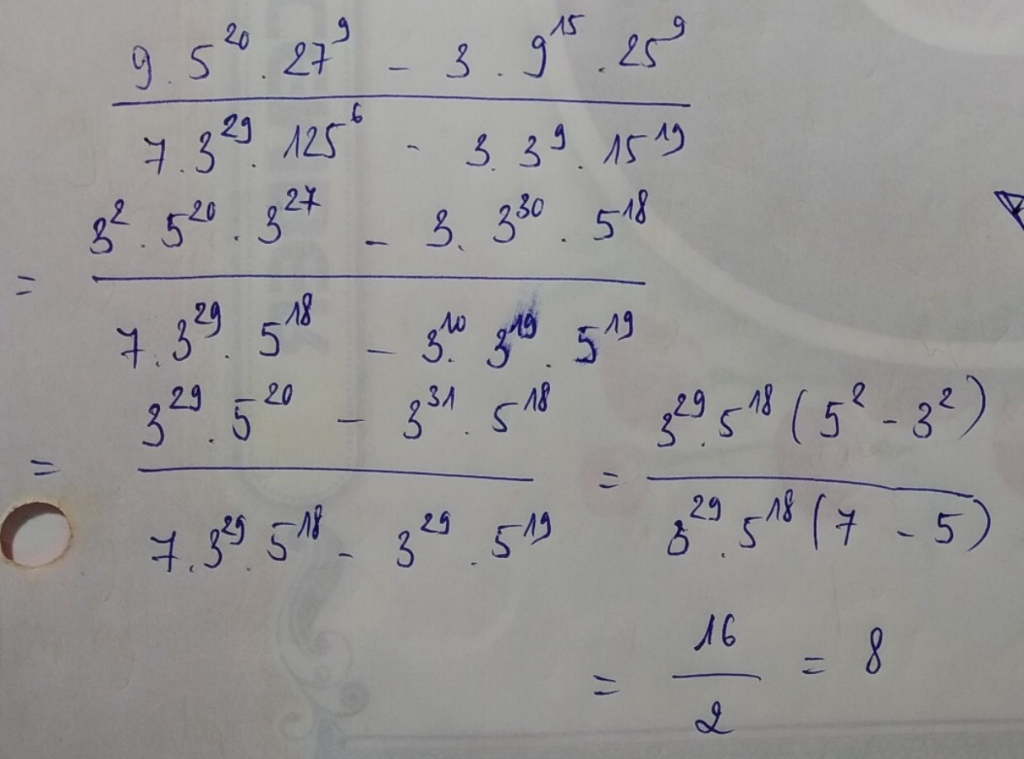 9 . 5^20 . 27^9 - 3 . 9^15 . 25^9
7 . 3^29 . 125^6 - 3 . 3^9 . 15^19
= 3^2 . 5^20 . 3^27 - 3 . 3^30 . 5^18
7 . 3^29 . 5^18 - 3^10 . 3^19 . 5^19
= 3^29 . 5^20 - 3^31 . 5^18 = 3^29 . 5^18 (5^2 - 3^2)
7 . 3^29 5^18 - 3^29 . 5^19 3^29 . 5^18 (7 - 5)
= 16 = 8
2